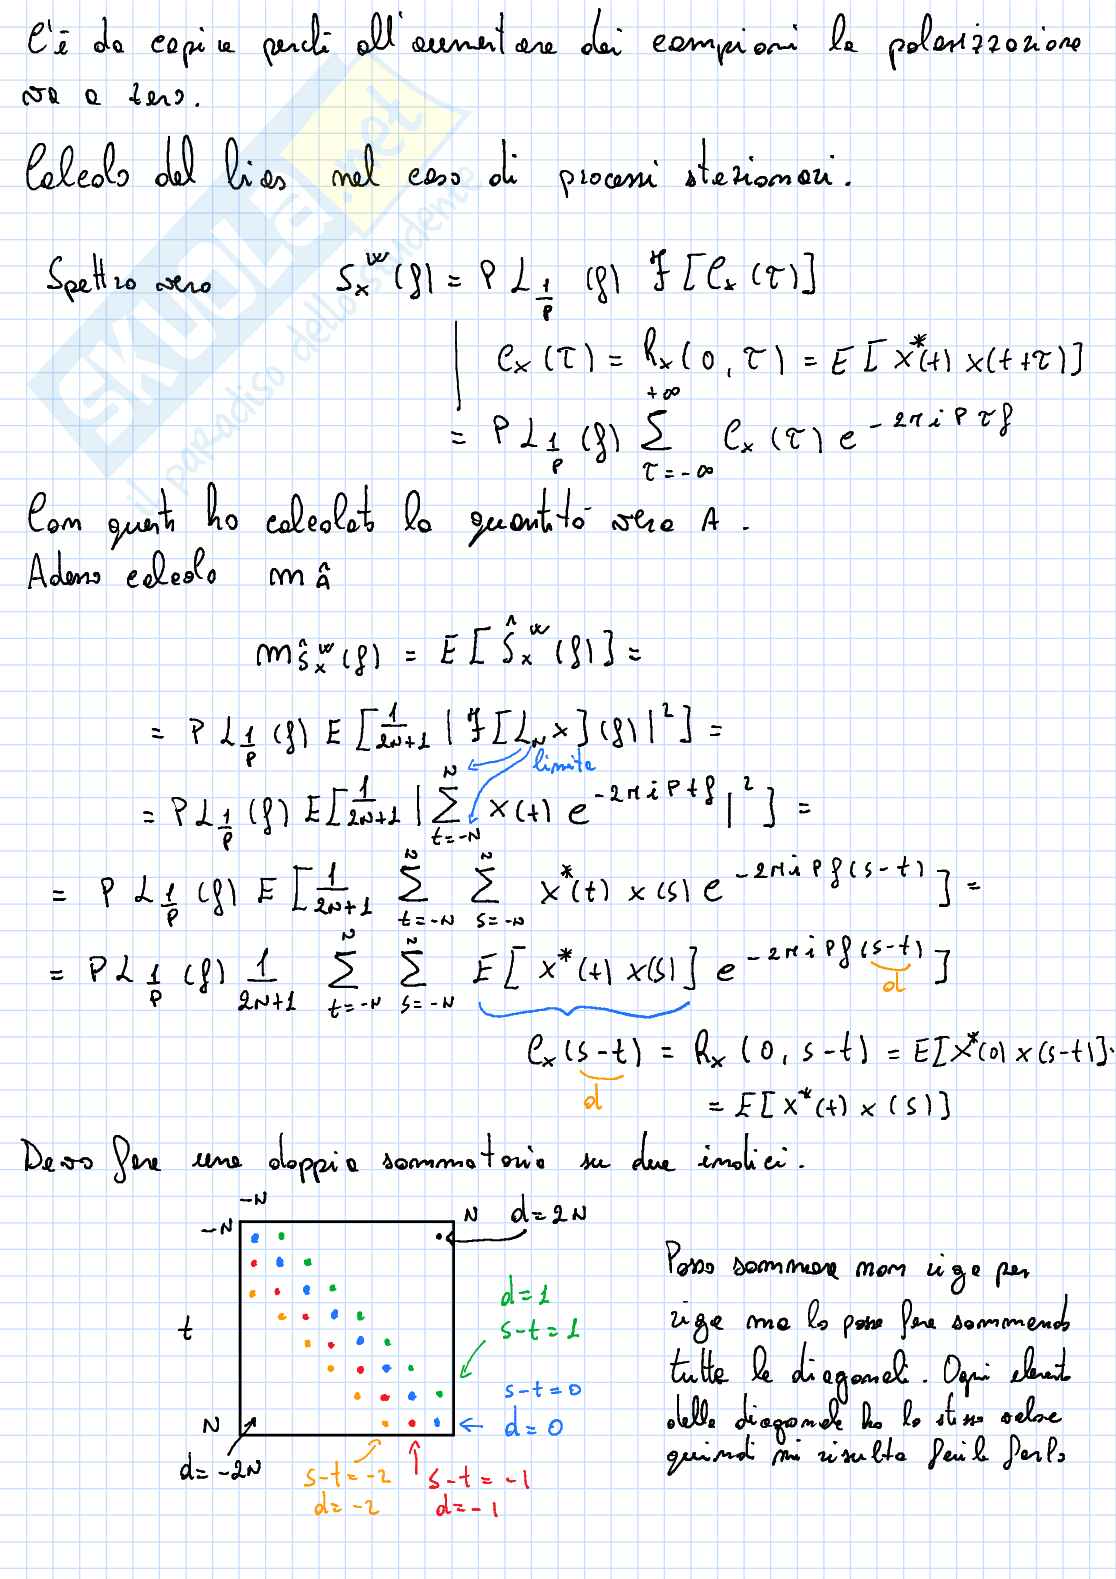 C'è da capire perché all'aumentare dei campioni la polarizzazione
va a zero.
Calcolo del bias nel caso di processi stazionari.
Spettro vero S_x^w(f) = P L_{1/P}(f) F[C_x(τ)]
C_x(τ) = R_x(0, τ) = E[x*(t) x(t+τ)]
= P L_{1/P}(f) Σ_{τ=-∞}^{+∞} C_x(τ) e^{-2πiPτf}
Con questo ho calcolato la quantità vera A.
Adesso calcolo m_Â
m_{Ŝ_x^w(f)} = E[Ŝ_x^w(f)] =
= P L_{1/P}(f) E[1/(2N+1) |F[L_N x](f)|^2] =
limita
= P L_{1/P}(f) E[1/(2N+1) |Σ_{t=-N}^{N} x(t) e^{-2πiPtf}|^2] =
= P L_{1/P}(f) E[1/(2N+1) Σ_{t=-N}^{N} Σ_{s=-N}^{N} x*(t) x(s) e^{-2πiPf(s-t)}] =
= P L_{1/P}(f) 1/(2N+1) Σ_{t=-N}^{N} Σ_{s=-N}^{N} E[x*(t) x(s)] e^{-2πiPf(s-t)}]
d
C_x(s-t) = R_x(0, s-t) = E[x*(0) x(s-t)].
d
= E[x*(t) x(s)]
Devo fare una doppia sommatoria su due indici.
-N
-N N d=2N
t
N
d=-2N
d=1
s-t=1
s-t=0
d=0
s-t=-2
d=-2
s-t=-1
d=-1
Posso sommare non riga per
riga ma lo posso fare sommando
tutte le diagonali. Ogni elemento
della diagonale ha lo stesso valore
quindi mi risulta facile farlo
SKUOLA.net
il paradiso dello studente